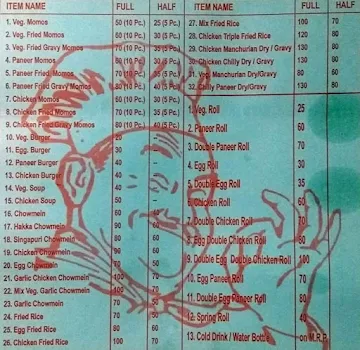 ITEM NAME FULL HALF
1. Veg. Momos 50 (10 Pc.) 25 (5 Pc.)
2. Veg. Fried Momos 60 (10 Pc.) 30 (5 Pc.)
3. Veg. Fried Gravy Momos 70 (10 Pc.) 35 (5 Pc.)
4. Paneer Momos
5. Paneer Fried Momos
6. Paneer Fried Gravy Momos 80 (10 Pc.) 40 (5 Pc.)
7. Chicken Momos 60 (10 Pc.) 30 (5 Pc.)
8. Chicken Fried Momos 70 (10 Pc.) 35 (5 Pc.)
9. Chicken Fried Gravy Momos 80 (10 Pc.) 40 (5 Pc.)
10. Veg. Burger 20
11. Egg. Burger 30
12. Paneer Burger 40
13. Chicken Burger 40
14. Veg. Soup
15. Chicken Soup
16. Chowmein
17. Hakka Chowmein
18. Singapuri Chowmein
19. Chicken Chowmein
20. Egg Chowmein
21. Garlic Chicken Chowmein 100
22. Mix Veg. Garlic Chowmein
23. Garlic Chowmein
24. Fried Rice 70 50
25. Egg Fried Rice 80 60
26. Chicken Fried Rice 100 70
ITEM NAME FULL HALF
27. Mix Fried Rice 100 70
28. Chicken Triple Fried Rice 120 80
29. Chicken Manchurian Dry / Gravy 130 80
30. Chicken Chilly Dry / Gravy 130 80
31. Veg. Manchurian Dry/Gravy 80 60
32. Chilly Paneer Dry/Gravy 130 80
1. Veg. Roll 25
2. Paneer Roll 60
3. Double Paneer Roll
4. Egg Roll 30
5. Double Egg Roll 35
6. Chicken Roll 60
7. Double Chicken Roll
8. Egg Double Chicken Roll
9. Double Egg Double Chicken Roll 100
10. Egg Paneer Roll
11. Double Egg Paneer Roll 80
12. Spring Roll 40
13. Cold Drink / Water Bottle on M.R.P.